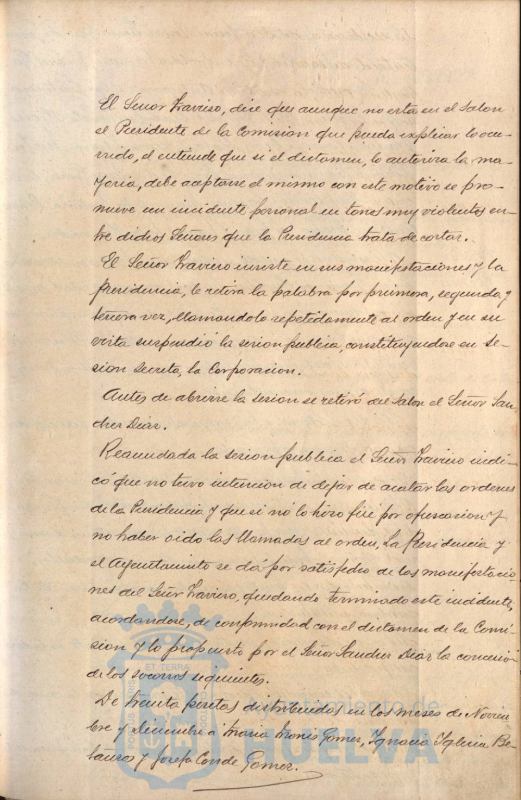 El Señor Traviso, dice que aunque no está en el Salon
el Presidente de la Comision que pueda explicar lo ocu-
rrido, el entiende que si el dictamen, lo autoriza la ma-
yoria, debe aceptarse el mismo con este motivo se pro-
mueve un incidente personal en tonos muy violentos en-
tre dichos Señores que la Presidencia trata de cortar.
El Señor Traviso insiste en sus manifestaciones y la
Presidencia, le retira la palabra por primera, segunda y
tercera vez, llamandolo repetidamente al orden y en su
vista suspendió la sesion publica, constituyendose en se-
sion secreta, la Corporacion.
Antes de abrirse la sesion se retiró del Salon el Señor San-
chez Diaz.
Reanudada la sesion publica el Señor Traviso indi-
có que no tuvo intencion de dejar de acatar las ordenes
de la Presidencia y que si nó lo hizo fué por ofuscacion y
no haber oido las llamadas al orden, La Presidencia y
el Ayuntamiento se dá por satisfecho de las manifestacio-
nes del Señor Traviso, quedando terminado este incidente,
acordandose, de conformidad con el dictamen de la Comi-
sion y lo propuesto por el Señor Sanchez Diaz la concesion
de los socorros siguientes.
De treinta pesetas distribuidas en los meses de Noviem-
bre y Diciembre a Maria Gomez, Ignacia Iglesia Be-
y Josefa Conde Gomez.
ET TERRA
HUELVA